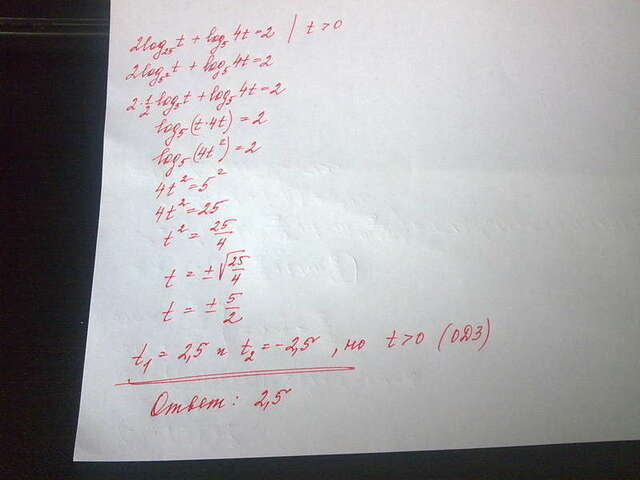 2log₂₅t + log₅4t = 2 | t > 0
2log₅²t + log₅4t = 2
2·½log₅t + log₅4t = 2
log₅(t·4t) = 2
log₅(4t²) = 2
4t² = 5²
4t² = 25
t² = 25/4
t = ±√25/4
t = ± 5/2
t₁ = 2,5 и t₂ = -2,5, но t > 0 (ОДЗ)
Ответ: 2,5